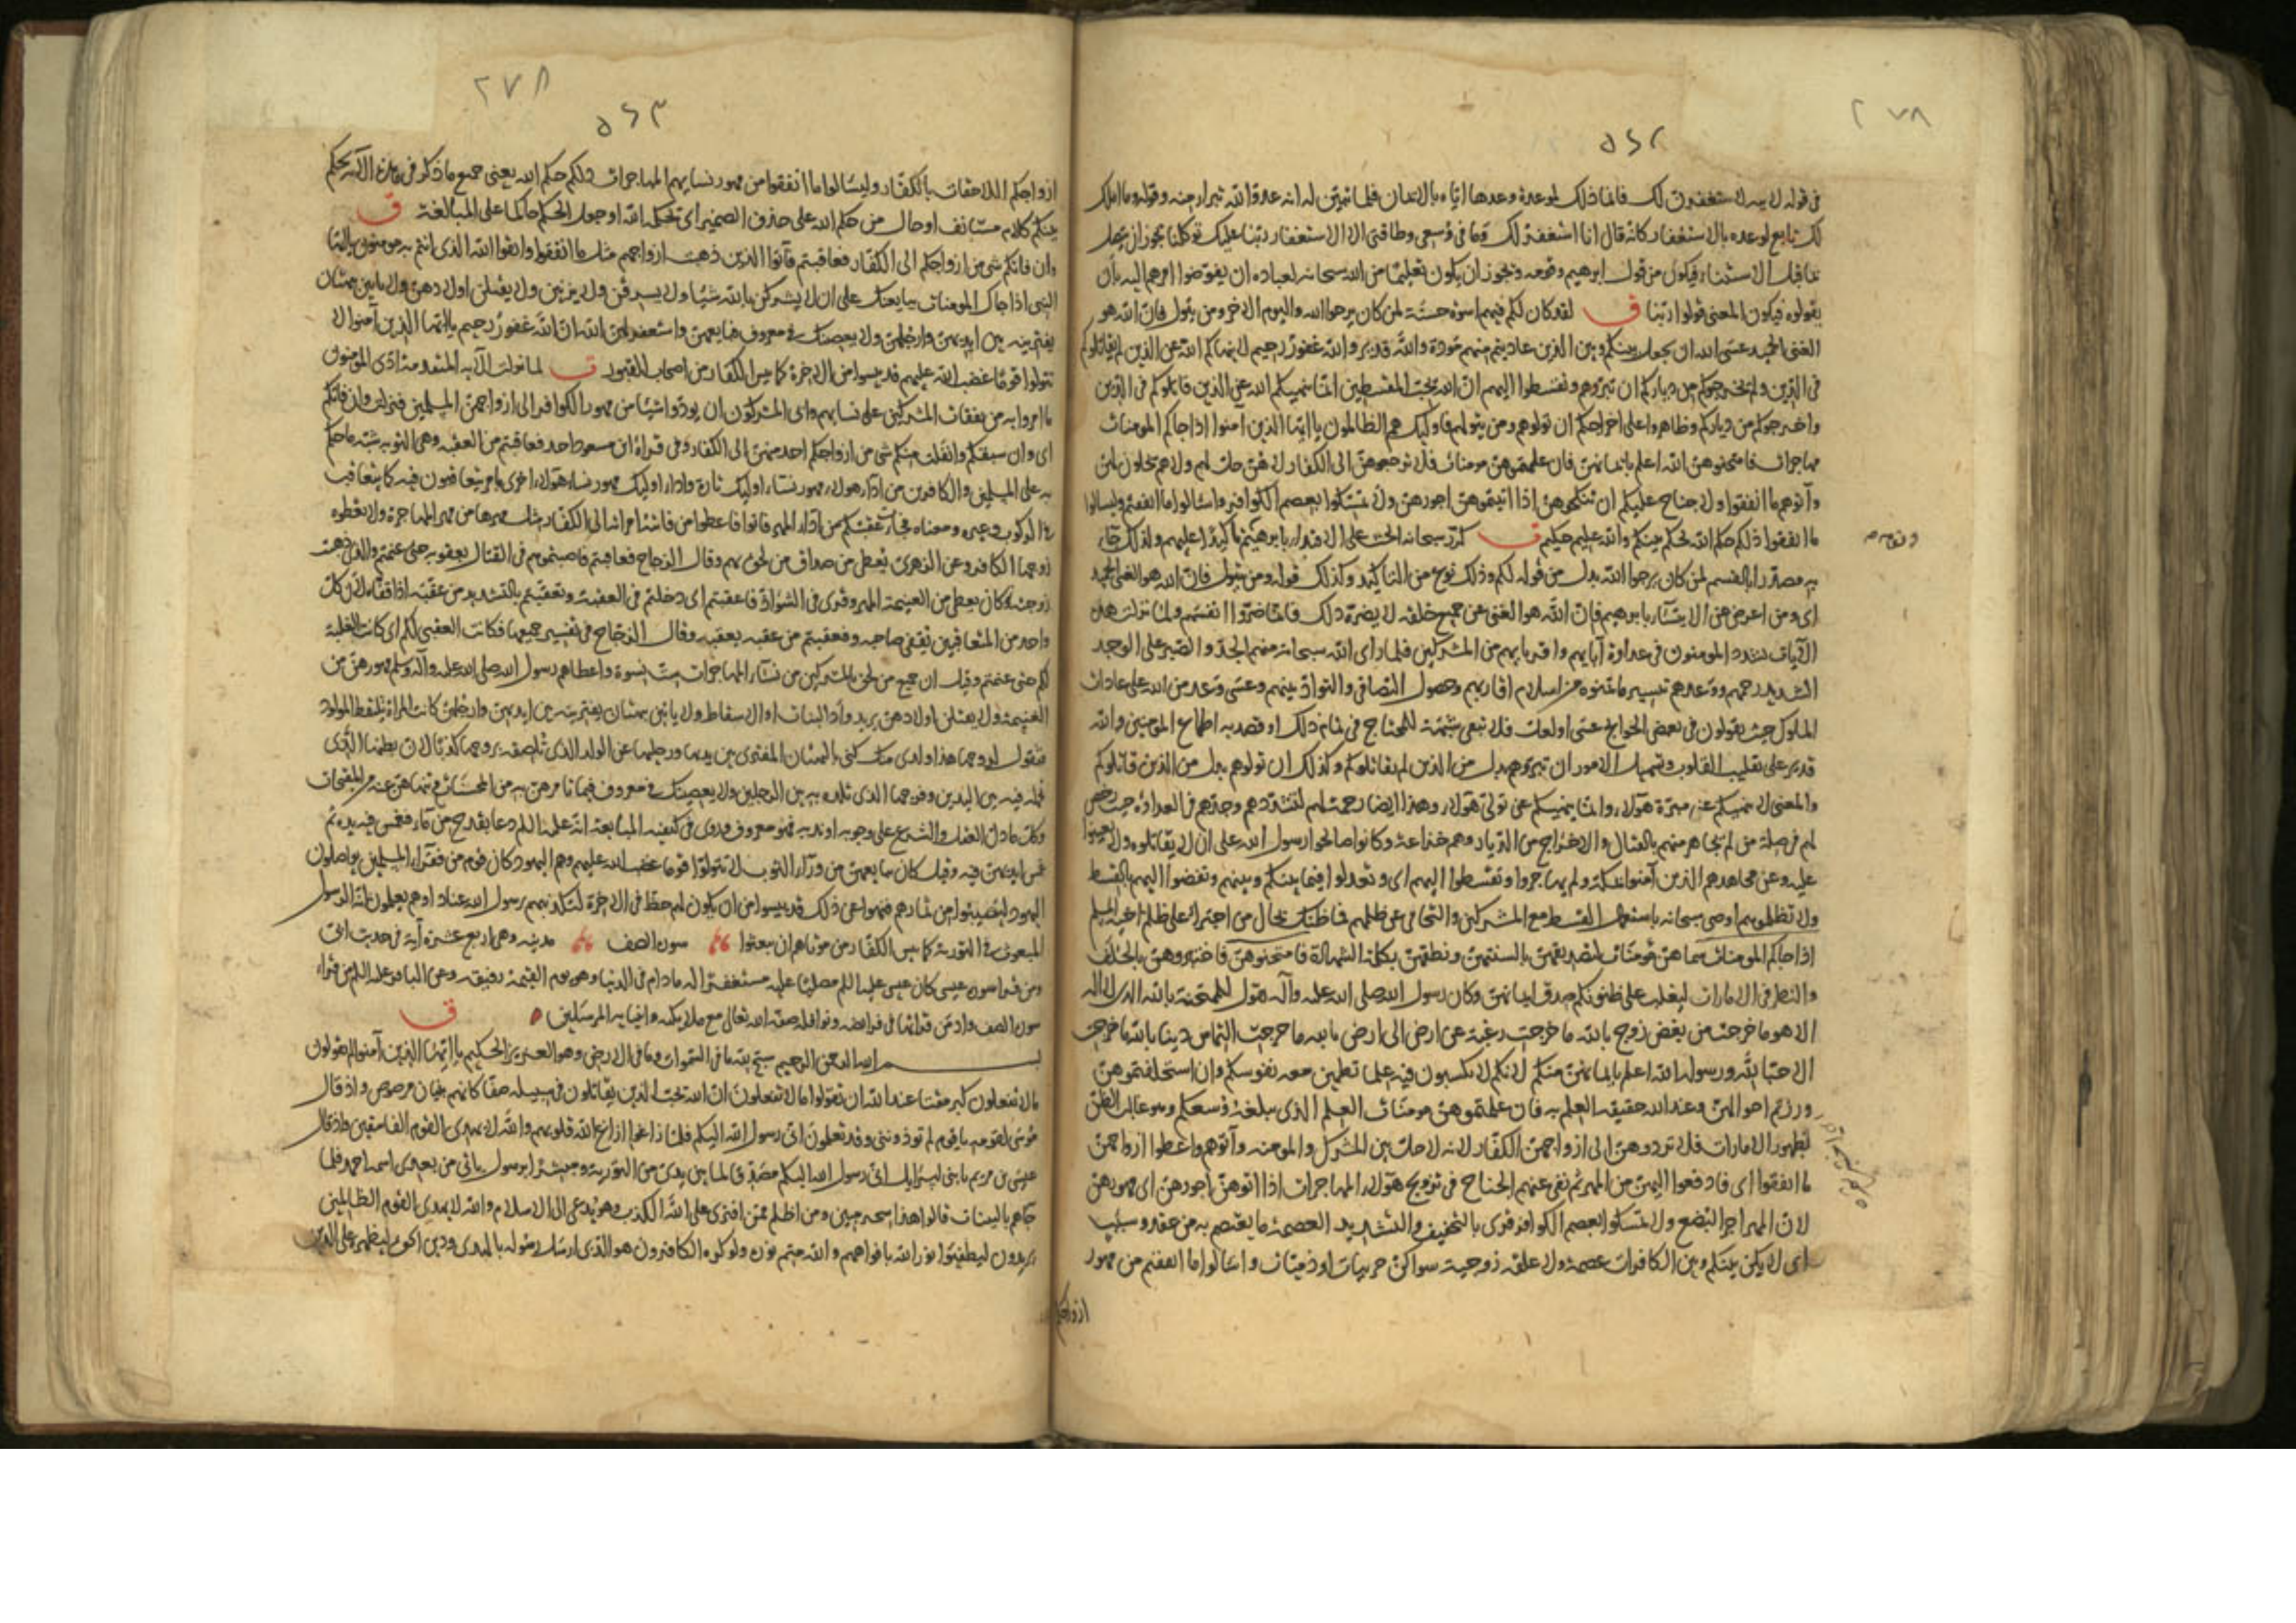 ٢٧٨
٥٤٢
فى قوله لابيه لاستغفرن لك فانما ذلك لموعدة وعدها اياه بالايمان فلما تبين له انه عدو لله تبرا منه وقوله وما املك
لك تابع لوعده بالاستغفار كانه قال انا استغفر لك وما فى وسعى وطاقتى الا الاستغفار ربنا عليك توكلنا يجوز ان يتصل
بما قبل الاستثناء فيكون من قول ابرهيم وقومه ويجوز ان يكون تعليما من الله سبحانه لعباده ان يفوضوا امرهم اليه بأن
يقولوه فيكون المعنى قولوا ربنا ق لقد كان لكم فيهم اسوة حسنة لمن كان يرجوا الله واليوم الاخر ومن يتول فان الله هو
الغنى الحميد عسى الله ان يجعل بينكم وبين الذين عاديتم منهم مودة والله قدير والله غفور رحيم لا ينهاكم الله عن الذين لم يقاتلوكم
فى الدين ولم يخرجوكم من دياركم ان تبروهم وتقسطوا اليهم ان الله يحب المقسطين انما ينهيكم الله عن الذين قاتلوكم فى الدين
واخرجوكم من دياركم وظاهروا على اخراجكم ان تولوهم ومن يتولهم فاوليك هم الظالمون يا ايها الذين امنوا اذا جاكم المومنات
مهاجرات فامتحنوهن الله اعلم بايمانهن فان علمتموهن مومنات فلا ترجعوهن الى الكفار لا هن حل لهم ولا هم يحلون لهن
وآتوهم ما انفقوا ولا جناح عليكم ان تنكحوهن اذا آتيتموهن اجورهن ولا تمسكوا بعصم الكوافر واسئالوا ما انفقتم وليسالوا
ما انفقوا ذلكم حكم الله يحكم بينكم والله عليم حكيم ق كرر سبحانه الحث على الاقتداء بابرهيم تأكيدا عليهم ولذلك جاء
به مصدرا بالقسم لمن كان يرجوا الله بدل من قوله لكم وذلك نوع من التاكيد وكذلك قوله ومن يتول فان الله هو الغنى الحميد
اى ومن اعرض عن الايتساء بابرهيم فان الله هو الغنى عن جميع خلقه لا يضره ذلك فانما ضروا انفسهم ولما نزلت هذه
الآيات تشدد المومنون فى عداوة آبايهم واقربايهم من المشركين فلما راى الله سبحانه منهم الجد والصبر على الوجه
الشديد رحمهم ووعدهم تيسير ما تمنوه من اسلام اقاربهم وحصول التصافى والتواد بينهم وعسى وعد من الله على عادات
الملوك حيث يقولون فى بعض الحوايج عسى او لعل فلا تبقى شبهة للمحتاج فى تمام ذلك او قصد به اطماع المومنين والله
قدير على تقليب القلوب وتسهيل الامور ان تبروهم بدل من الذين لم يقاتلوكم وكذلك ان تولوهم بدل من الذين قاتلوكم
والمعنى لا ينهيكم عن مبرة هؤلاء وانما ينهيكم عن تولى هؤلاء وهذا ايضا رحمة لهم لتشددهم وجدهم فى العداوة حيث رخص
لهم فى صلة من لم يجاهر منهم بالقتال والاخراج من الديار وهم خزاعة وكانوا صالحوا رسول الله على ان لا يقاتلوه ولا يعينوا
عليه وعن مجاهد هم الذين آمنوا بمكة ولم يهاجروا وتقسطوا اليهم اى وتعدلوا فيما بينكم وبينهم وتقضوا اليهم بالقسط
ولا تظلموهم اوصى سبحانه باستعمال القسط مع المشركين والتحامى عن ظلمهم فما ظنك بحال من اجترا على ظلم اخيه المسلم
اذا جاكم المومنات سماهن مومنات لتصديقهن بالسنتهن ونطقهن بكلمة الشهادة فامتحنوهن فاختبروهن بالحلف
والنظر فى الامارات ليغلب على ظنونكم صدق ايمانهن وكان رسول الله صلى الله عليه وآله يقول للممتحنة بالله الذى لا اله
الا هو ما خرجت من بغض زوج بالله ما خرجت رغبة عن ارض الى ارض بالله ما خرجت التماس دنيا بالله ما خرجت
الا حبا لله ورسوله الله اعلم بايمانهن منكم لانكم لا تكسبون فيه علما تطمين معه نفوسكم وان استحلفتموهن
ورزتم احوالهن وعند الله حقيقة العلم به فان علمتموهن مومنات العلم الذى يبلغه وسعكم وهو غالب الظن
لظهور الامارات فلا تردوهن الى ازواجهن الكفار لانه لا حل بين المشرك والمومنه وآتوهم واعطوا ازواجهن
ما انفقوا اى فادفعوا اليهن من المهر ثم نفى عنهم الجناح فى تزويج هؤلاء المهاجرات اذا آتوهن اجورهن اى مهورهن
لان المهر اجر البضع ولا تمسكوا بعصم الكوافر قرى بالتخفيف والتشديد العصمة ما يعتصم به من عقد وسبب
اى لا يكن بينكم وبين الكافرات عصمة ولا علقة زوجية سوا كن حربيات او ذميات واسالوا ما انفقتم من مهور
ازواجكم
٢٧٨
٥٤٣
ازواجكم اللاحقات بالكفار وليسالوا ما انفقوا من مهور نسايهم المهاجرات ذلكم حكم الله يعنى جميع ما ذكر فى هذه الآية يحكم
بينكم كلام مستانف او حال من حكم الله على حذف الضمير اى يحكمه الله او جعل الحكم حاكما على المبالغة ق
وان فاتكم شى من ازواجكم الى الكفار فعاقبتم فآتوا الذين ذهبت ازواجهم مثل ما انفقوا واتقوا الله الذى انتم به مومنون يا ايها
النبى اذا جاك المومنات يبايعنك على ان لا يشركن بالله شيئا ولا يسرقن ولا يزنين ولا يقتلن اولادهن ولا ياتين ببهتان
يفترينه بين ايديهن وارجلهن ولا يعصينك فى معروف فبايعهن واستغفر لهن الله ان الله غفور رحيم يا ايها الذين آمنوا لا
تتولوا قوما غضب الله عليهم قد يئسوا من الاخرة كما يئس الكفار من اصحاب القبور ق لما نزلت الآية المتقدمة ادى المومنون
ما امروا به من نفقات المشركين على نسايهم وابى المشركون ان يودوا شيئا من مهور الكوافر الى ازواجهن المسلمين فنزلت وان فاتكم
اى وان سبقكم وانفلت منكم شى من ازواجكم احد منهن الى الكفار وفى قراءة ابن مسعود احد فعاقبتم من العقبة وهى النوبه شبه ما حكم
به على المسلمين والكافرين من اداء هولاء مهور نساء اوليك تارة واداء اوليك مهور نساء هؤلاء اخرى بامر يتعاقبون فيه كما يتعاقب
فى الركوب وغيره ومعناه فجاءت عقبتكم من اداء المهر فاتوا فاعطوا من فاتته امراته الى الكفار مثل مهرها من مهر المهاجرة ولا تعطوه
زوجها الكافر وعن الزهرى يعطى من صداق من لحق بهم وقال الزجاج فعاقبتم فاصبتموهم فى القتال بعقوبة حتى غنمتم والذى ذهبت
زوجته كان يعطى من الغنيمة المهر وقرى فى الشواذ فاعقبتم اى دخلتم فى العقبة وفعقبتم بالتشديد من عقبه اذا قفاه لان كل
واحد من المتعاقبين يقفى صاحبه وفعقبتم من عقبه يعقبه وقال الزجاج فى تفسير جميعها فكانت العقبى لكم اى كانت الغلبة
لكم حتى غنمتم وقيل ان جميع من لحق بالمشركين من نساء المهاجرات ست نسوة واعطاهم رسول الله صلى الله عليه وآله وسلم مهورهن من
الغنيمة ولا يقتلن اولادهن يريد وأد البنات او الاسقاط ولا ياتين ببهتان يفترينه بين ايديهن وارجلهن كانت المراة تلتقط المولود
فتقول لزوجها هذا ولدى منك كنى بالبهتان المفترى بين يديها ورجليها عن الولد الذى تلصقه بزوجها كذبا لان بطنها الذى
تحمله فيه بين اليدين وفرجها الذى تلده به بين الرجلين ولا يعصينك فى معروف فيما تامرهن به من المحسنات وتنهاهن عنه من المقبحات
وكل ما دل العقل والشرع على وجوبه او ندبه فهو معروف وروى فى كيفية المبايعة انه عليه السلم دعا بقدح من ماء فغمس فيه يده ثم
غمس ايديهن فيه وقيل كان يبايعهن من ورآء الثوب لا تتولوا قوما غضب الله عليهم وهم اليهود كان قوم من فقراء المسلمين يواصلون
اليهود ليصيبوا من ثمارهم فنهوا عن ذلك قد يئسوا من ان يكون لهم حظ فى الاخرة لتكذيبهم رسول الله عنادا وهم يعلمون انه الرسول
المبعوث فى التورية كما يئس الكفار من موتاهم ان يبعثوا سورة الصف مدنية وهى اربع عشرة آية فى حديث ابى
ومن قرا سورة عيسى كان عيسى عليه السلم مصليا عليه مستغفرا له ما دام فى الدنيا وهو يوم القيمة رفيقه وعن الباقر عليه السلم من قراء
سورة الصف وادمن قراتها فى فرايضه ونوافله صفه الله تعالى مع ملايكته وانبيايه المرسلين ق
بسم الله الرحمن الرحيم سبح لله ما فى السموات وما فى الارض وهو العزيز الحكيم يا ايها الذين آمنوا لم تقولون
ما لا تفعلون كبر مقتا عند الله ان تقولوا ما لا تفعلون ان الله يحب الذين يقاتلون فى سبيله صفا كانهم بنيان مرصوص واذ قال
موسى لقومه يا قوم لم تؤذوننى وقد تعلمون انى رسول الله اليكم فلما زاغوا ازاغ الله قلوبهم والله لا يهدى القوم الفاسقين واذ قال
عيسى بن مريم يا بنى اسرايل انى رسول الله اليكم مصدقا لما بين يدى من التورية ومبشرا برسول ياتى من بعدى اسمه احمد فلما
جاهم بالبينات قالوا هذا سحر مبين ومن اظلم ممن افترى على الله الكذب وهو يدعى الى الاسلام والله لا يهدى القوم الظالمين
يريدون ليطفئوا نور الله بافواههم والله متم نوره ولو كره الكافرون هو الذى ارسل رسوله بالهدى ودين الحق ليظهره على الدين